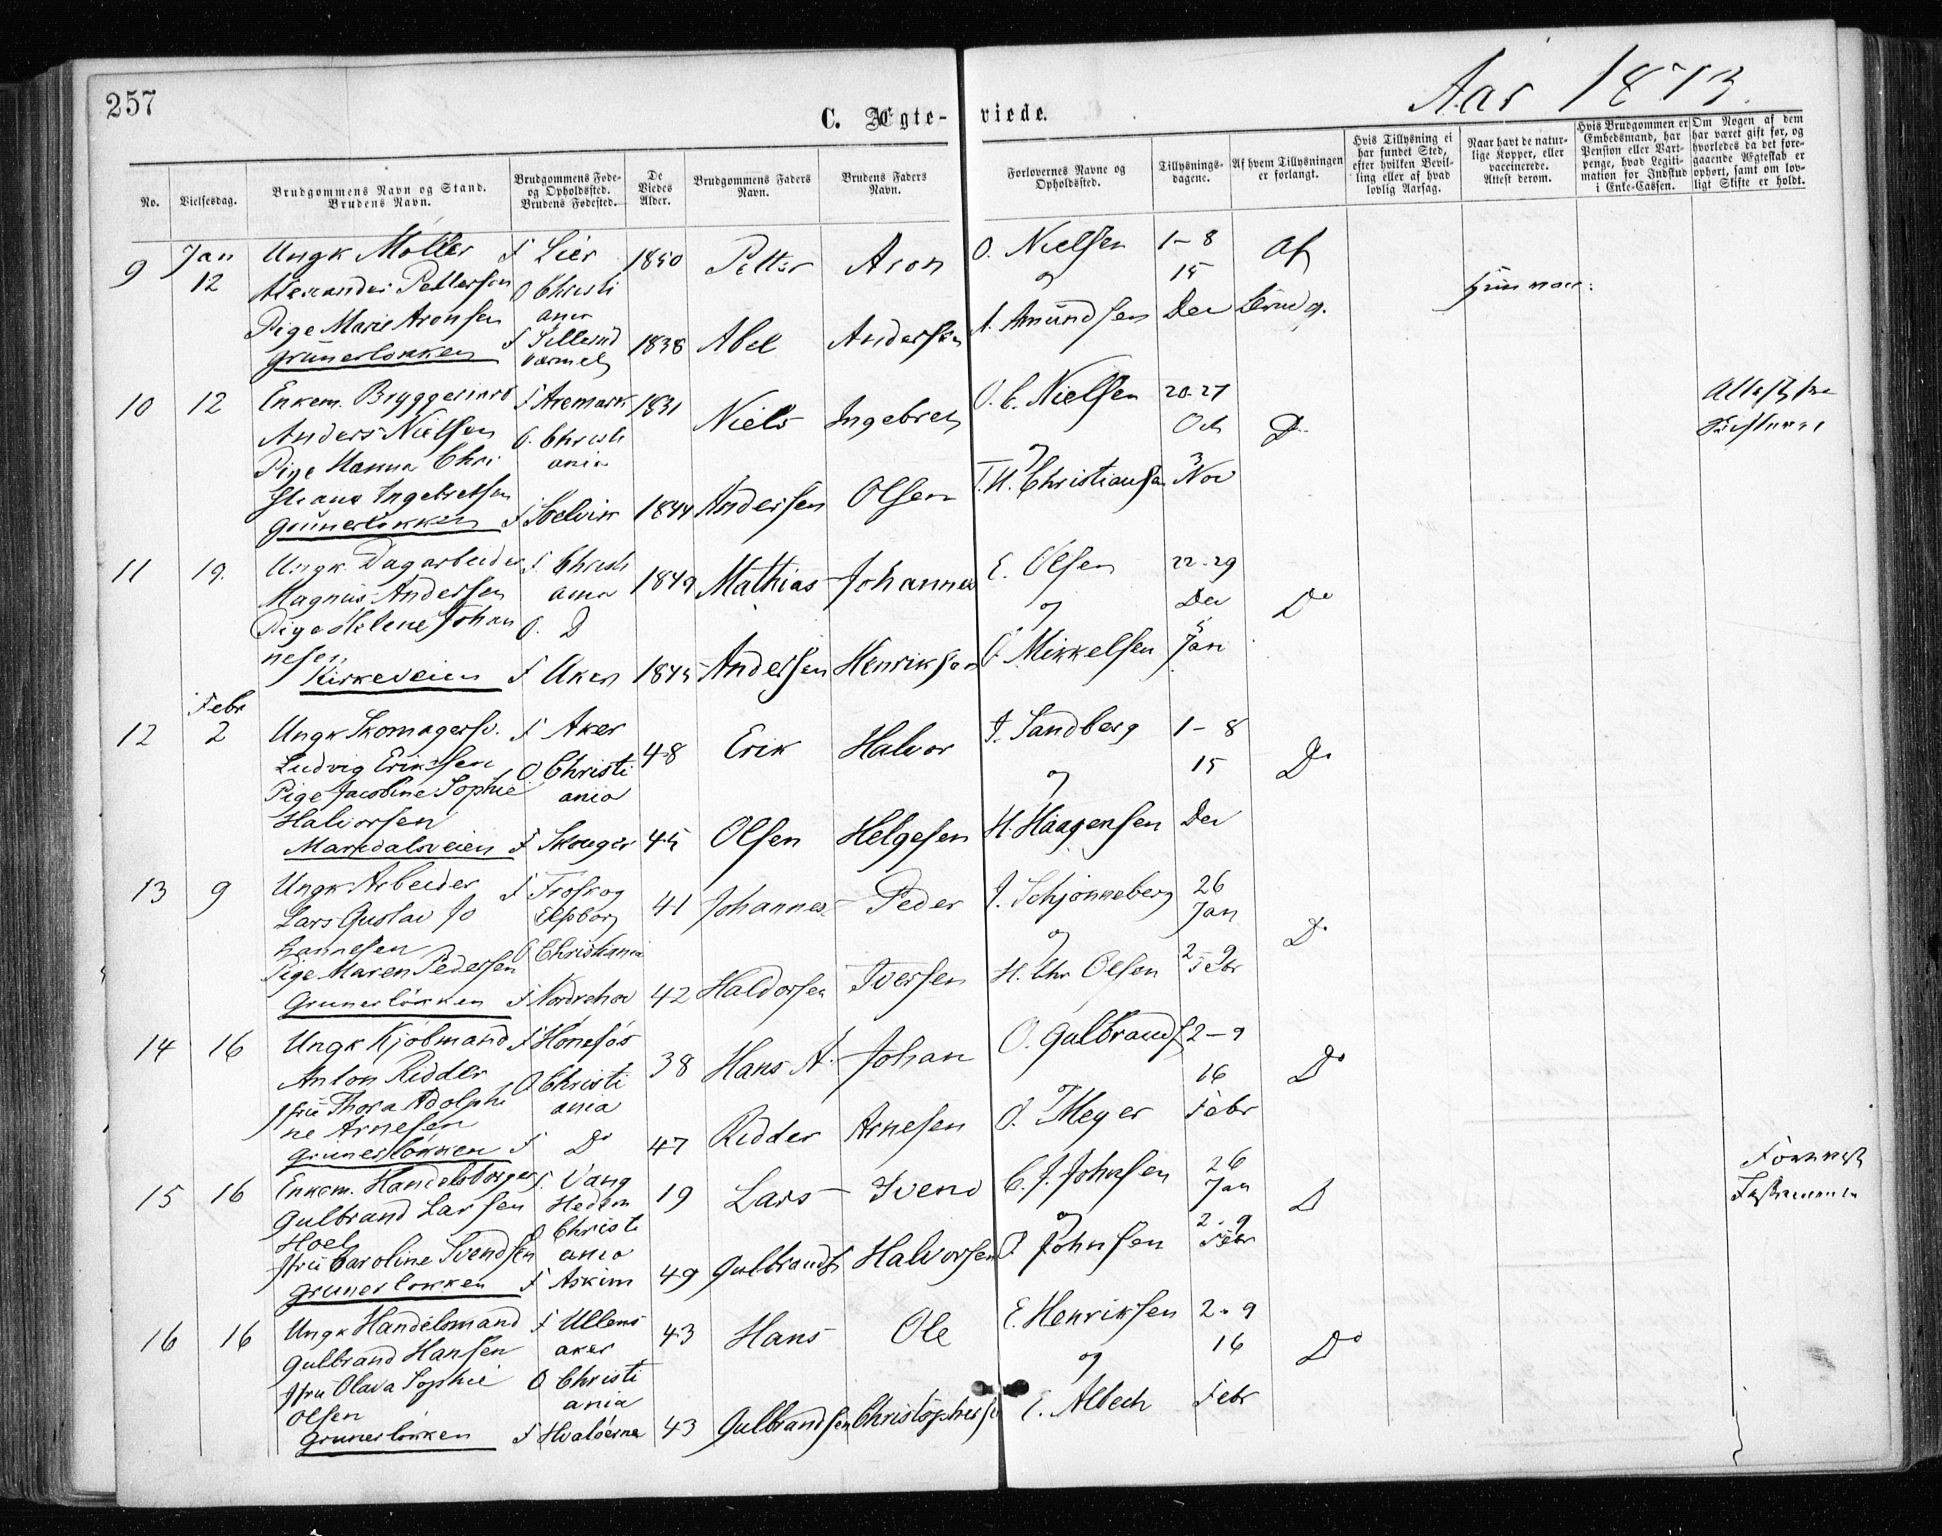 257
C. Ægte-
viede.
Aar 1873.
No.
Vielsesdag.
Brudgommens Navn og Stand.
Brudens Navn.
Brudgommens Føde-
og Opholdssted.
Brudens Fødested.
De
Viedes
Alder.
Brudgommens Faders
Navn.
Brudens Faders
Navn.
Forlovernes Navne og
Opholdssted.
Tillysnings-
dagene.
Af hvem Tillysningen
er forlangt.
Hvis Tillysning ei
har fundet Sted,
efter hvilken Bevil-
ling eller af hvad
lovlig Aarsag.
Naar havt de natur-
lige Kopper, eller
vaccinerede.
Attest derom.
Hvis Brudgommen er
Embedsmand, har
Pension eller Vart-
penge, hvad Legiti-
mation for Indskud
i Enke-Cassen.
Om Nogen af dem
har været gift før, og
hvorledes da det fore-
gaaende Ægteskab er
ophørt, samt om lov-
ligt Skifte er holdt.
9
Jan
12
Ungk Møller
Alexander Pettersen
Pige Marie Aronsen
Grünerløkken
F Lier
O Christi
ania
F
1850
1838
Petter
Abel
Aron
Andersen
O. Nielsen
og
A. Amundsen
1-8
15
Dec
Af
Brudg.
10
12
Enkem. Bryggeriarb
Anders Nielsen
Pige Hanna Chri
stiana Ingebretsen
Grünerløkken
F Aremark
O. Christi
ania
F Svelvik
1831
1844
Niels
Andersen
Ingebret
Olsen
O. C. Nielsen
og
T. H. Christiansen
20-27
Oct
3
Nov
Do
11
19.
Ungk. Dagarbeider
Magnus Andersen
Pige Helene Johan
nesen
Kirkeveien
F. Christi
ania
O. D
F Aker
1849
1845
Mathias
Andersen
Johannes
Henriksen
E. Olsen
og
O. Mikkelsen
22-29
Dec
5
Jan
Do
12
Febr
2
Ungk Skomagersv.
Ludvig Eriksen
Pige Jacobine Sophie
Halvorsen
Maridalsveien
F Aker
O Christi
ania
F Skouger
48
45
Erik
Olsen
Halvor
Helgesen
J. Sandberg
og
H. Haagensen
1-8
15
Dec
Do
13
9
Ungk Arbeider
Lars Gustav Jo
hannesen
Pige Maren Pedersen
Grunerløkken
F
Elfsborg
O Christiania
F Norderhov
41
42
Johannes
Haldorsen
Peder
Iversen
J. Schjønneberg
og
H. Chr Olsen
26
Jan
2-9
Febr
Do
14
16
Ungk Kjøbmand
Anton Ridder
Jfru Thora Adolphi
ne Arnesen
Grunerløkken
F Hønefos
O Christi
ania
F Do
38
47
Hans A.
Ridder
Johan
Arnesen
O. Gulbrands
og
O. Meyer
2-9
16
Febr
Do
15
16
Enkem. Handelsborger
Gulbrand Larsen
Hoel
Jfru Caroline Svendsen
Grunerløkken
F. Vang
Hedem
O Christi
ania
F Askim
19
49
Lars
Gulbrands
Svend
Halvorsen
C. J. Johnsen
og
Johnsen
26
Jan
2-9
Febr
D
16
16
Ungk Handelsmand
Gulbrand Hansen
Jfru Olava Sophie
Olsen
Grunerløkken
F Ullens
aker
O Christi
ania
F Hvaløerne
43
43
Hans
Gulbrandsen
Ole
Christophersen
E. Henriksen
og
E. Albech
2-9
16
Febr
Do